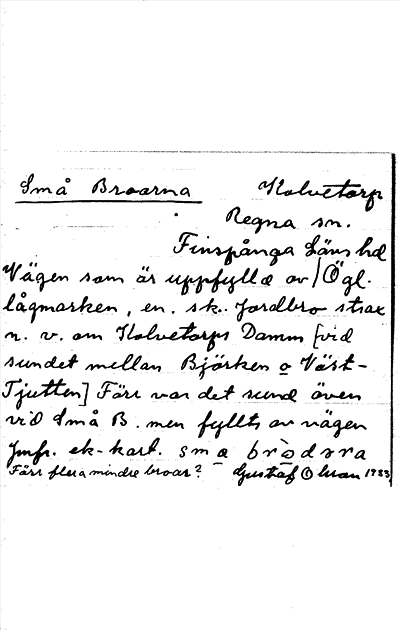 Små Broarna Kolvetorp
Regna sn.
Finspånga Läns hd
Vägen som är uppfylld av / Ögl.
lågmarken, en. sk. Jordbro strax
n. v. om Kolvetorps Damm [vid
sundet mellan Björken o Väst-
Tjutten] Förr var det sund även
vid Små B. men fyllts av vägen
Jmfr. ek-kart. sma bròdərа
Förr flera mindre broar? Gustaf 1933